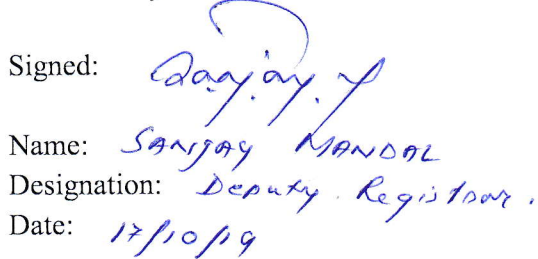 Signed: Sanjay. M
Name: SANJAY MANDAL
Designation: Deputy. Registrar.
Date: 17/10/19